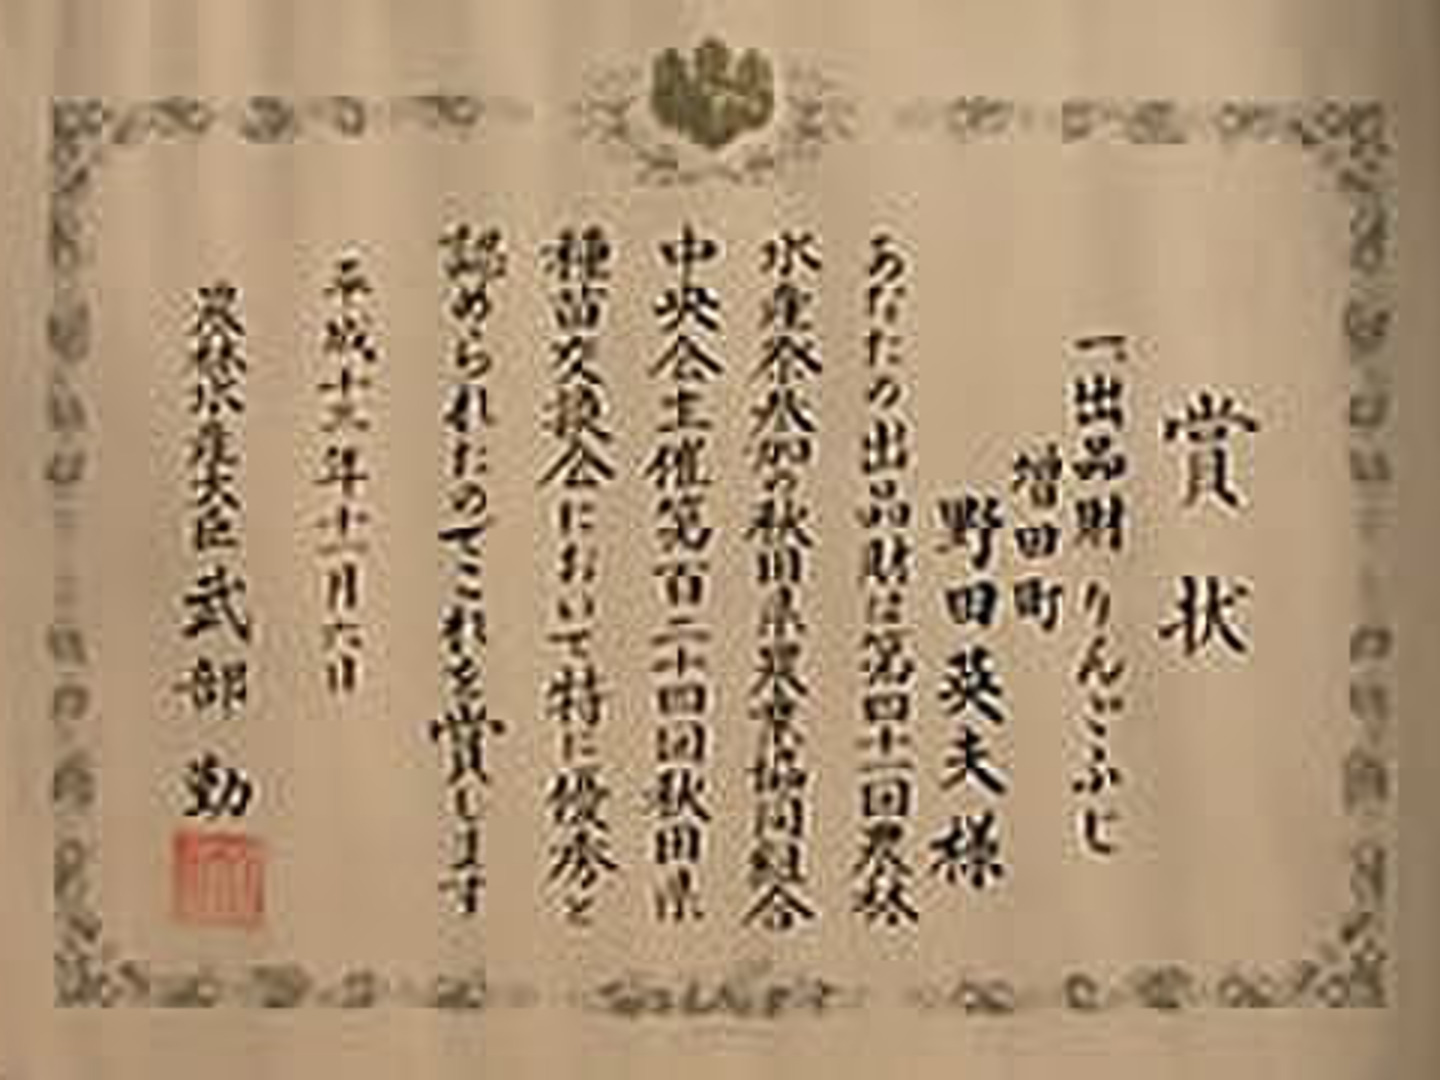 賞状
一、出品財 りんごふじ
増田町
野田英夫様
あなたの出品財は第四十回農林
水産祭参加の秋田県農業協同組合
中央会主催第百二十四回秋田県
種苗交換会において特に優秀と
認められたのでこれを賞します
平成十三年十一月六日
農林水産大臣 武部 勤